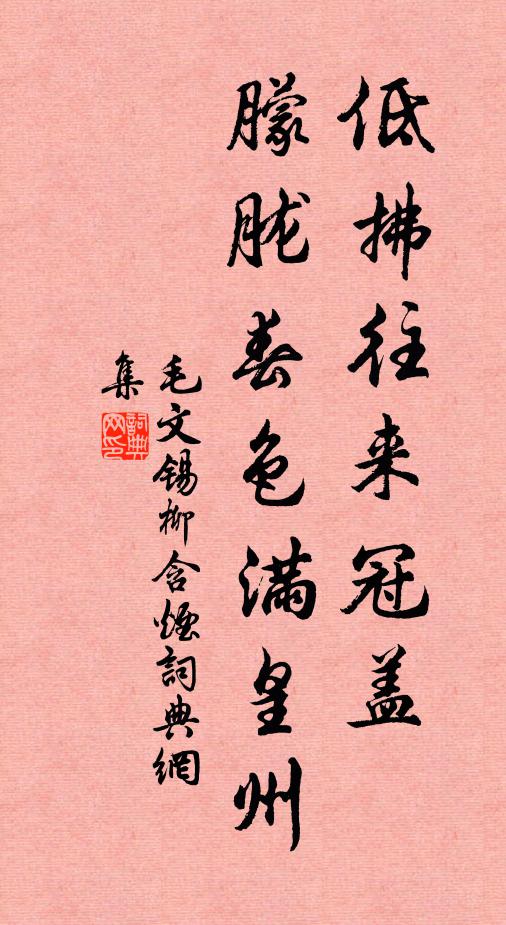 低拂往来冠盖
朦胧春色满皇州
毛文锡柳含煙詞典網
集
詞典网印